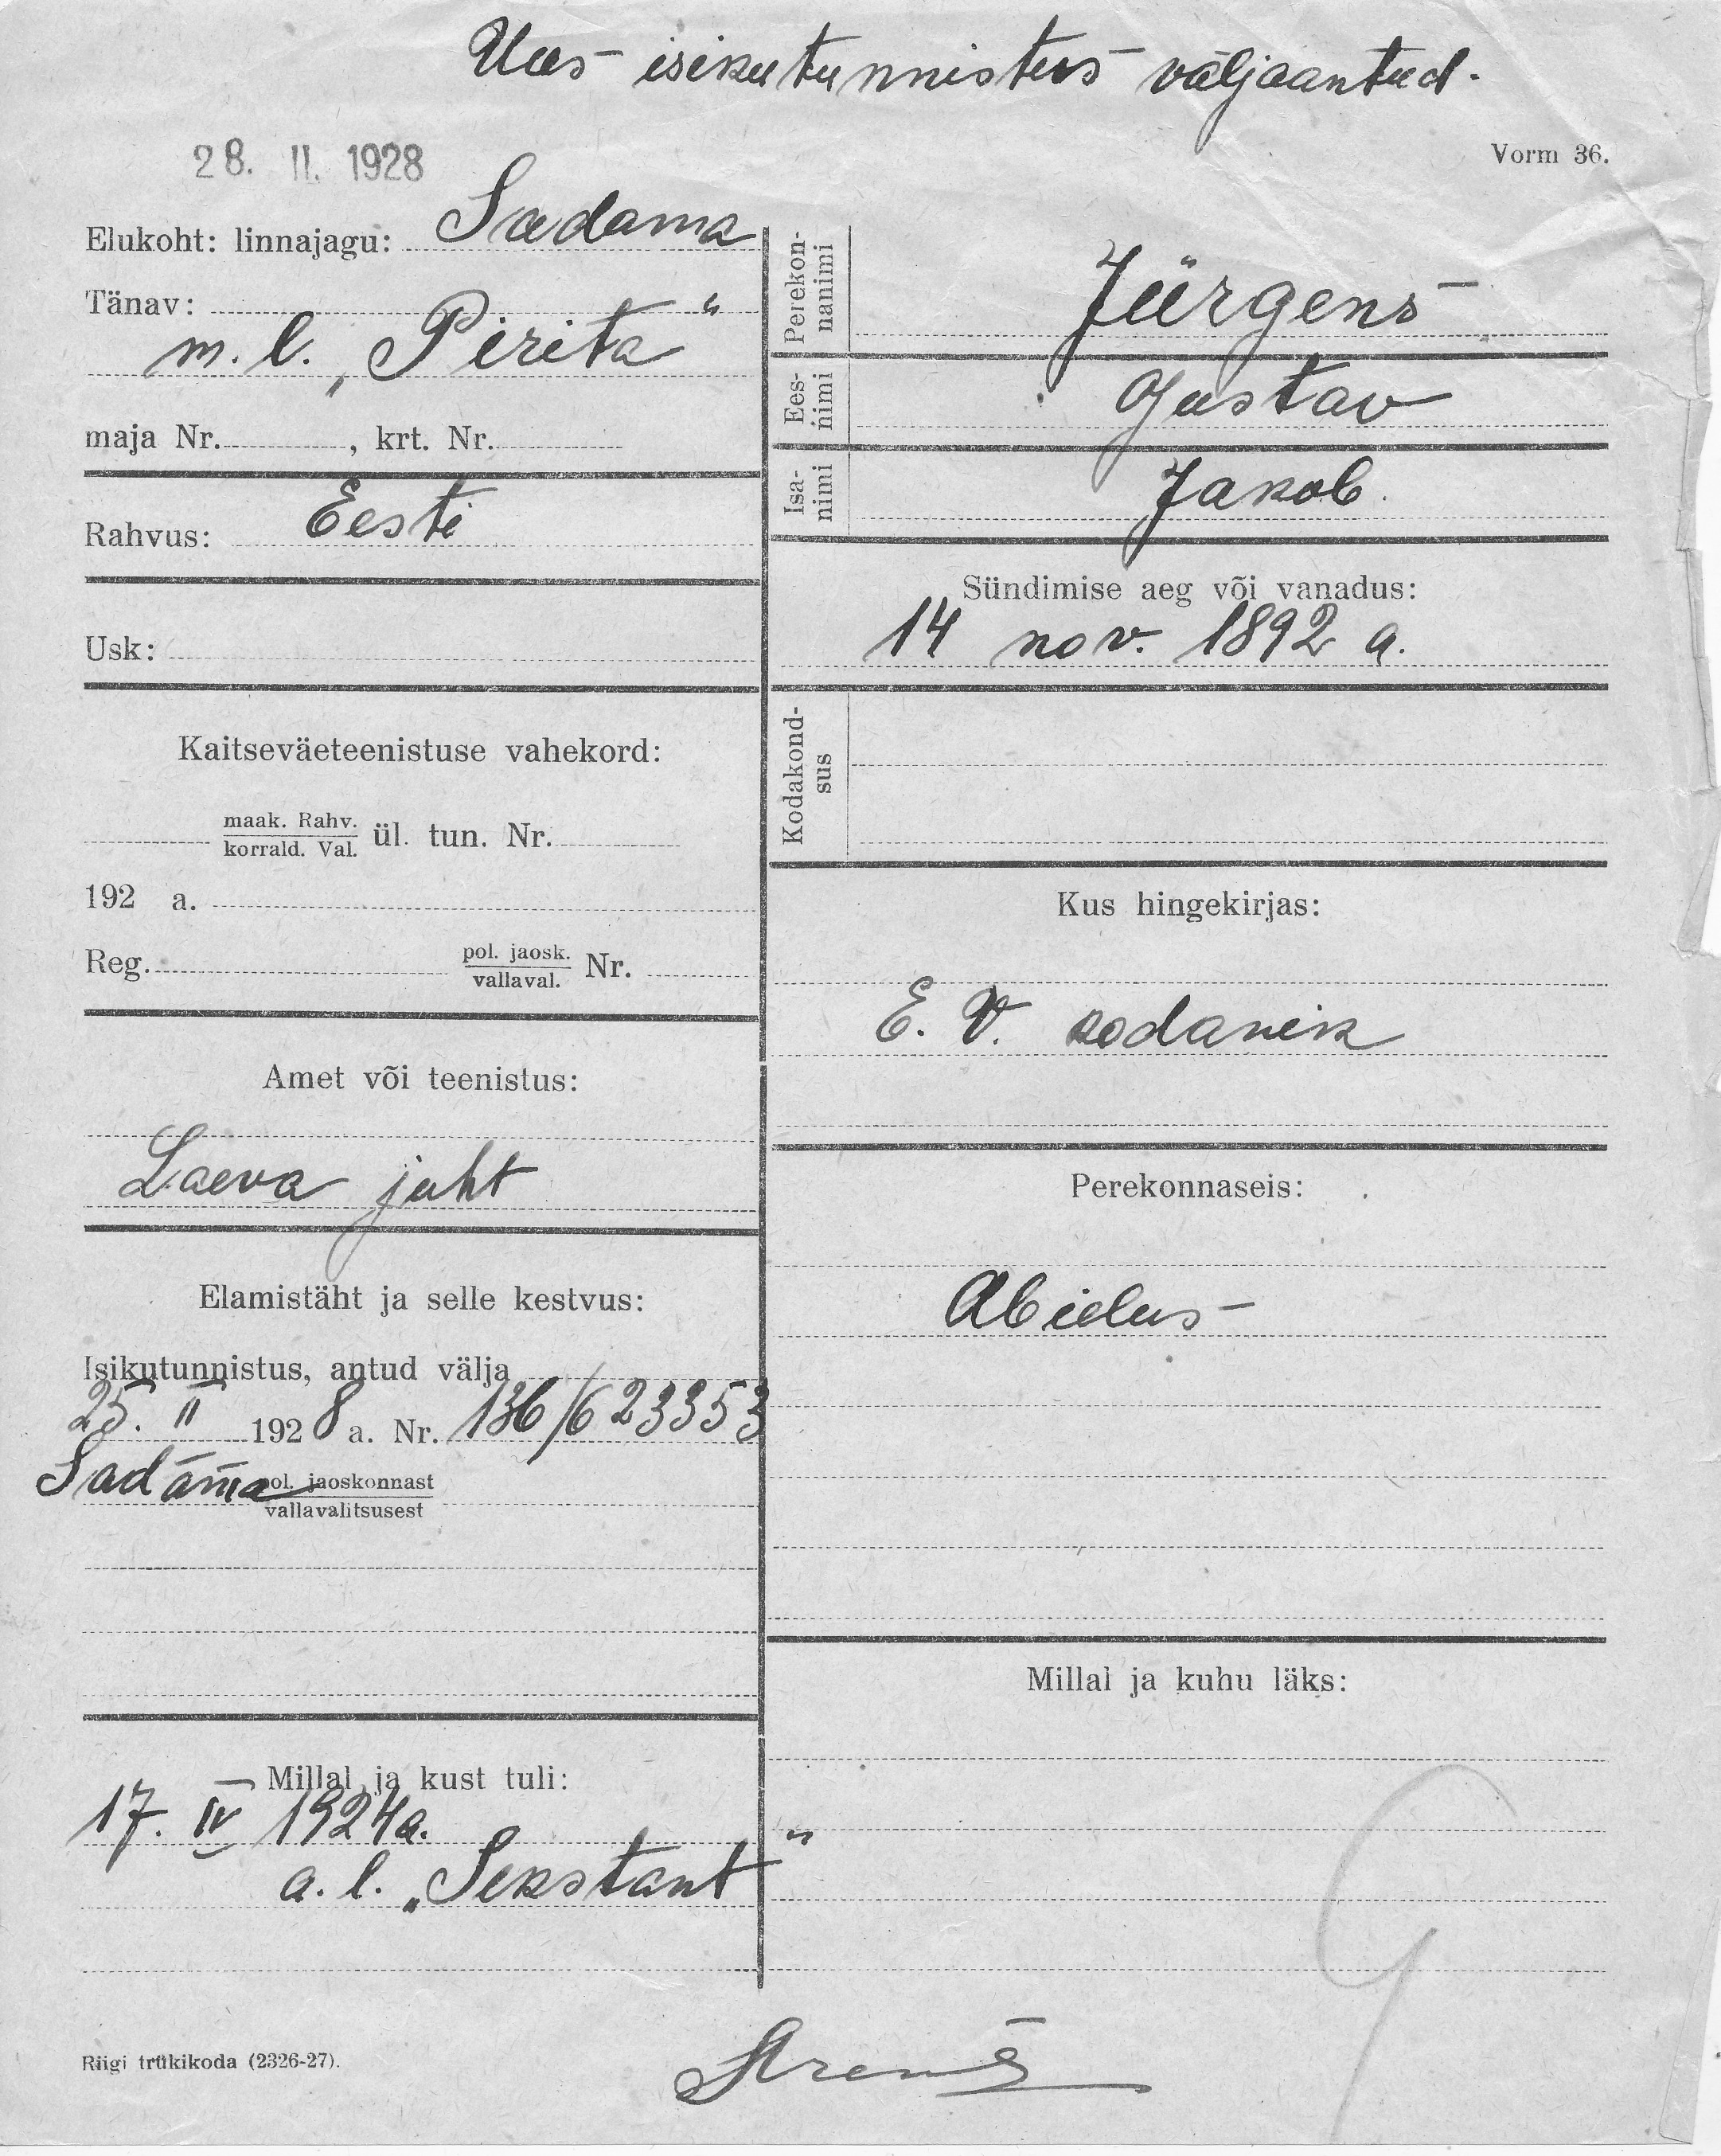 Uus isikutunnistus väljaantud.
28. II. 1928
Vorm 36.
Elukoht: linnajagu: Sadama
Tänav:
m. l. „Pirita“
maja Nr. , krt. Nr.
Rahvus: Eesti
Usk:
Kaitseväeteenistuse vahekord:
maak. Rahv.
korrald. Val. ül. tun. Nr.
192 a.
Reg. pol. jaosk.
vallaval. Nr.
Amet või teenistus:
Laeva juht
Elamistäht ja selle kestvus:
Isikutunnistus, antud välja
25. II 1928 a. Nr. 136/623353
Sadama pol. jaoskonnast
vallavalitsusest
Millal ja kust tuli:
17. IV 1924 a.
a. l. „Sekstant“
Riigi trükikoda (2326-27).
Perekon-
nanimi
Jürgens
Ees-
nimi
Gustav
Isa-
nimi
Jakob.
Sündimise aeg või vanadus:
14 nov. 1892 a.
Kodakond-
sus
Kus hingekirjas:
E. V. kodanik
Perekonnaseis:
Abielus
Millal ja kuhu läks: